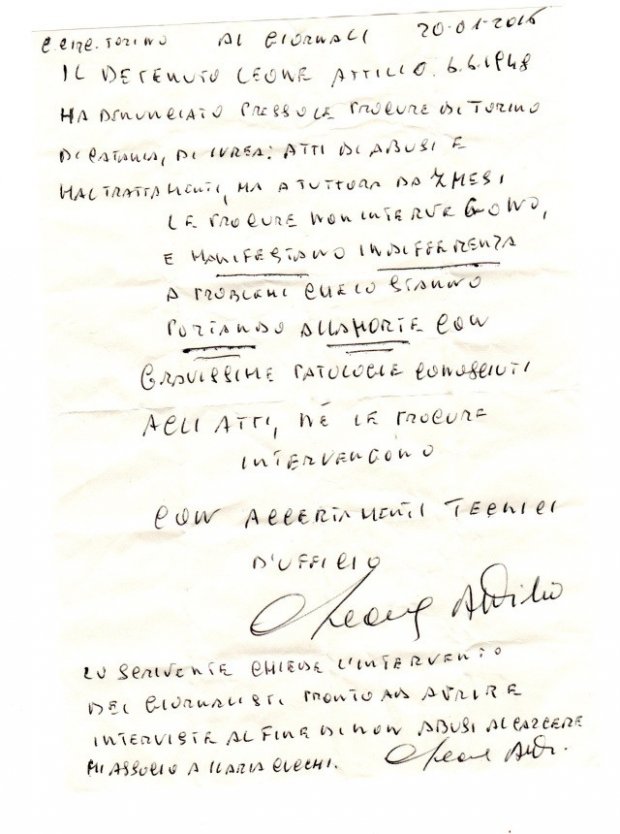 C.CIRC. TORINO AI GIORNALI 20-01-2016
IL DETENUTO LEONE ATTILIO 6.6.1948
HA DENUNCIATO PRESSO LE PROCURE DI TORINO
DI CATANIA, DI IVREA: ATTI DI ABUSI E
MALTRATTAMENTI, MA A TUTTORA DA 7 MESI
LE PROCURE NON INTERVEGONO,
E MANIFESTANO INDIFFERENZA
A PROBLEMI CHE LO STANNO
PORTANDO ALLA MORTE CON
GRAVISSIME PATOLOGIE CONOSCIUTI
AGLI ATTI, NÉ LE PROCURE
INTERVENGONO
CON ACCERTAMENTI TECNICI
D'UFFICIO
Leone Attilio
LO SCRIVENTE CHIEDE L'INTERVENTO
DEI GIORNALISTI. PRONTO AD APRIRE
INTERVISTE AL FINE DI NON ABUSI AL CARCERE
MI ASSOCIO A ILARIA CUCCHI. Leone Att.